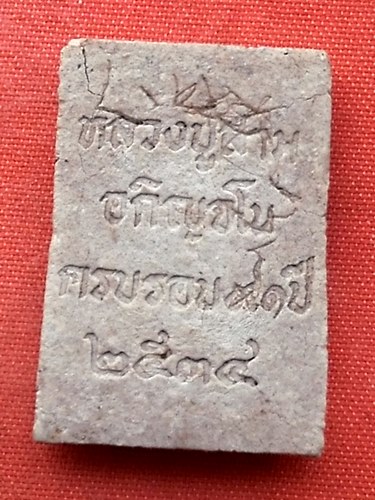 หลวงปู่สาม
อกิญจโน
ครบรอบ ๙๑ปี
๒๕๓๔